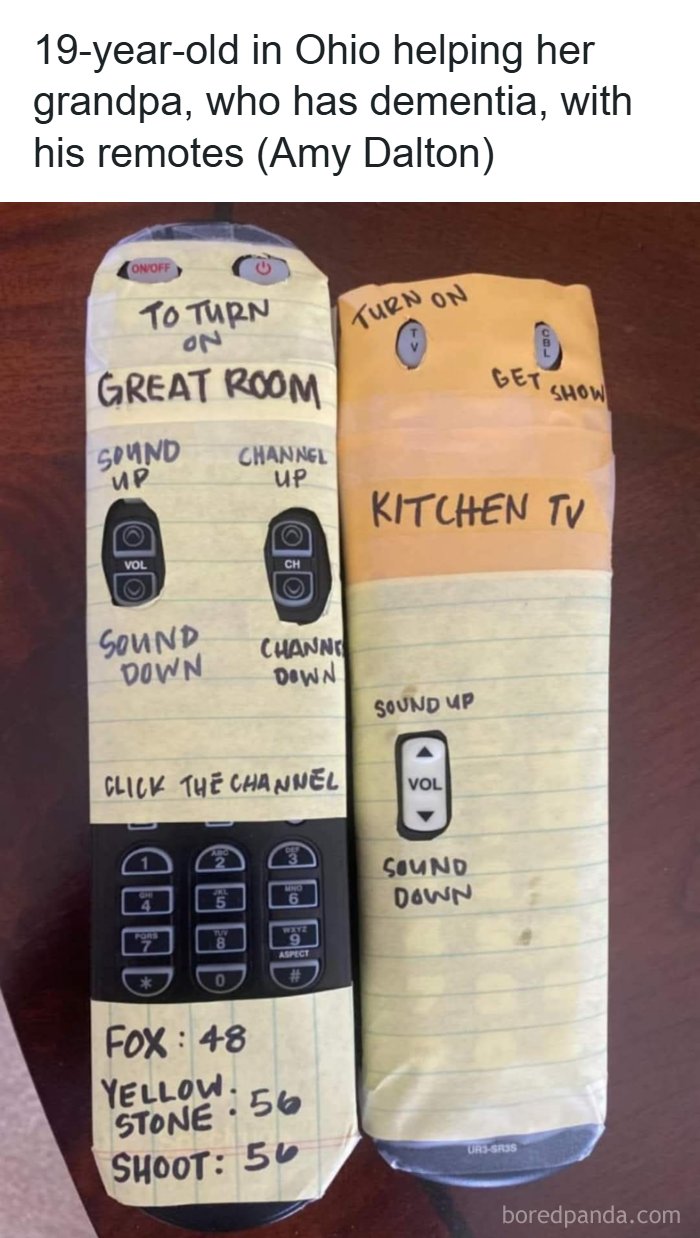 19-year-old in Ohio helping her
grandpa, who has dementia, with
his remotes (Amy Dalton)
ON/OFF
TO TURN
ON
GREAT ROOM
SOUND
UP
CHANNEL
UP
VOL
CH
SOUND
DOWN
CHANNE
DOWN
CLICK THE CHANNEL
1
ABC
2
DEF
3
GHI
4
JKL
5
MNO
6
PQRS
7
TUV
8
WXYZ
9
ASPECT
*
0
#
FOX: 48
YELLOW:
STONE : 56
SHOOT: 56
TURN ON
TV
CBL
GET SHOW
KITCHEN TV
SOUND UP
VOL
SOUND
DOWN
UR3-SR3S
boredpanda.com